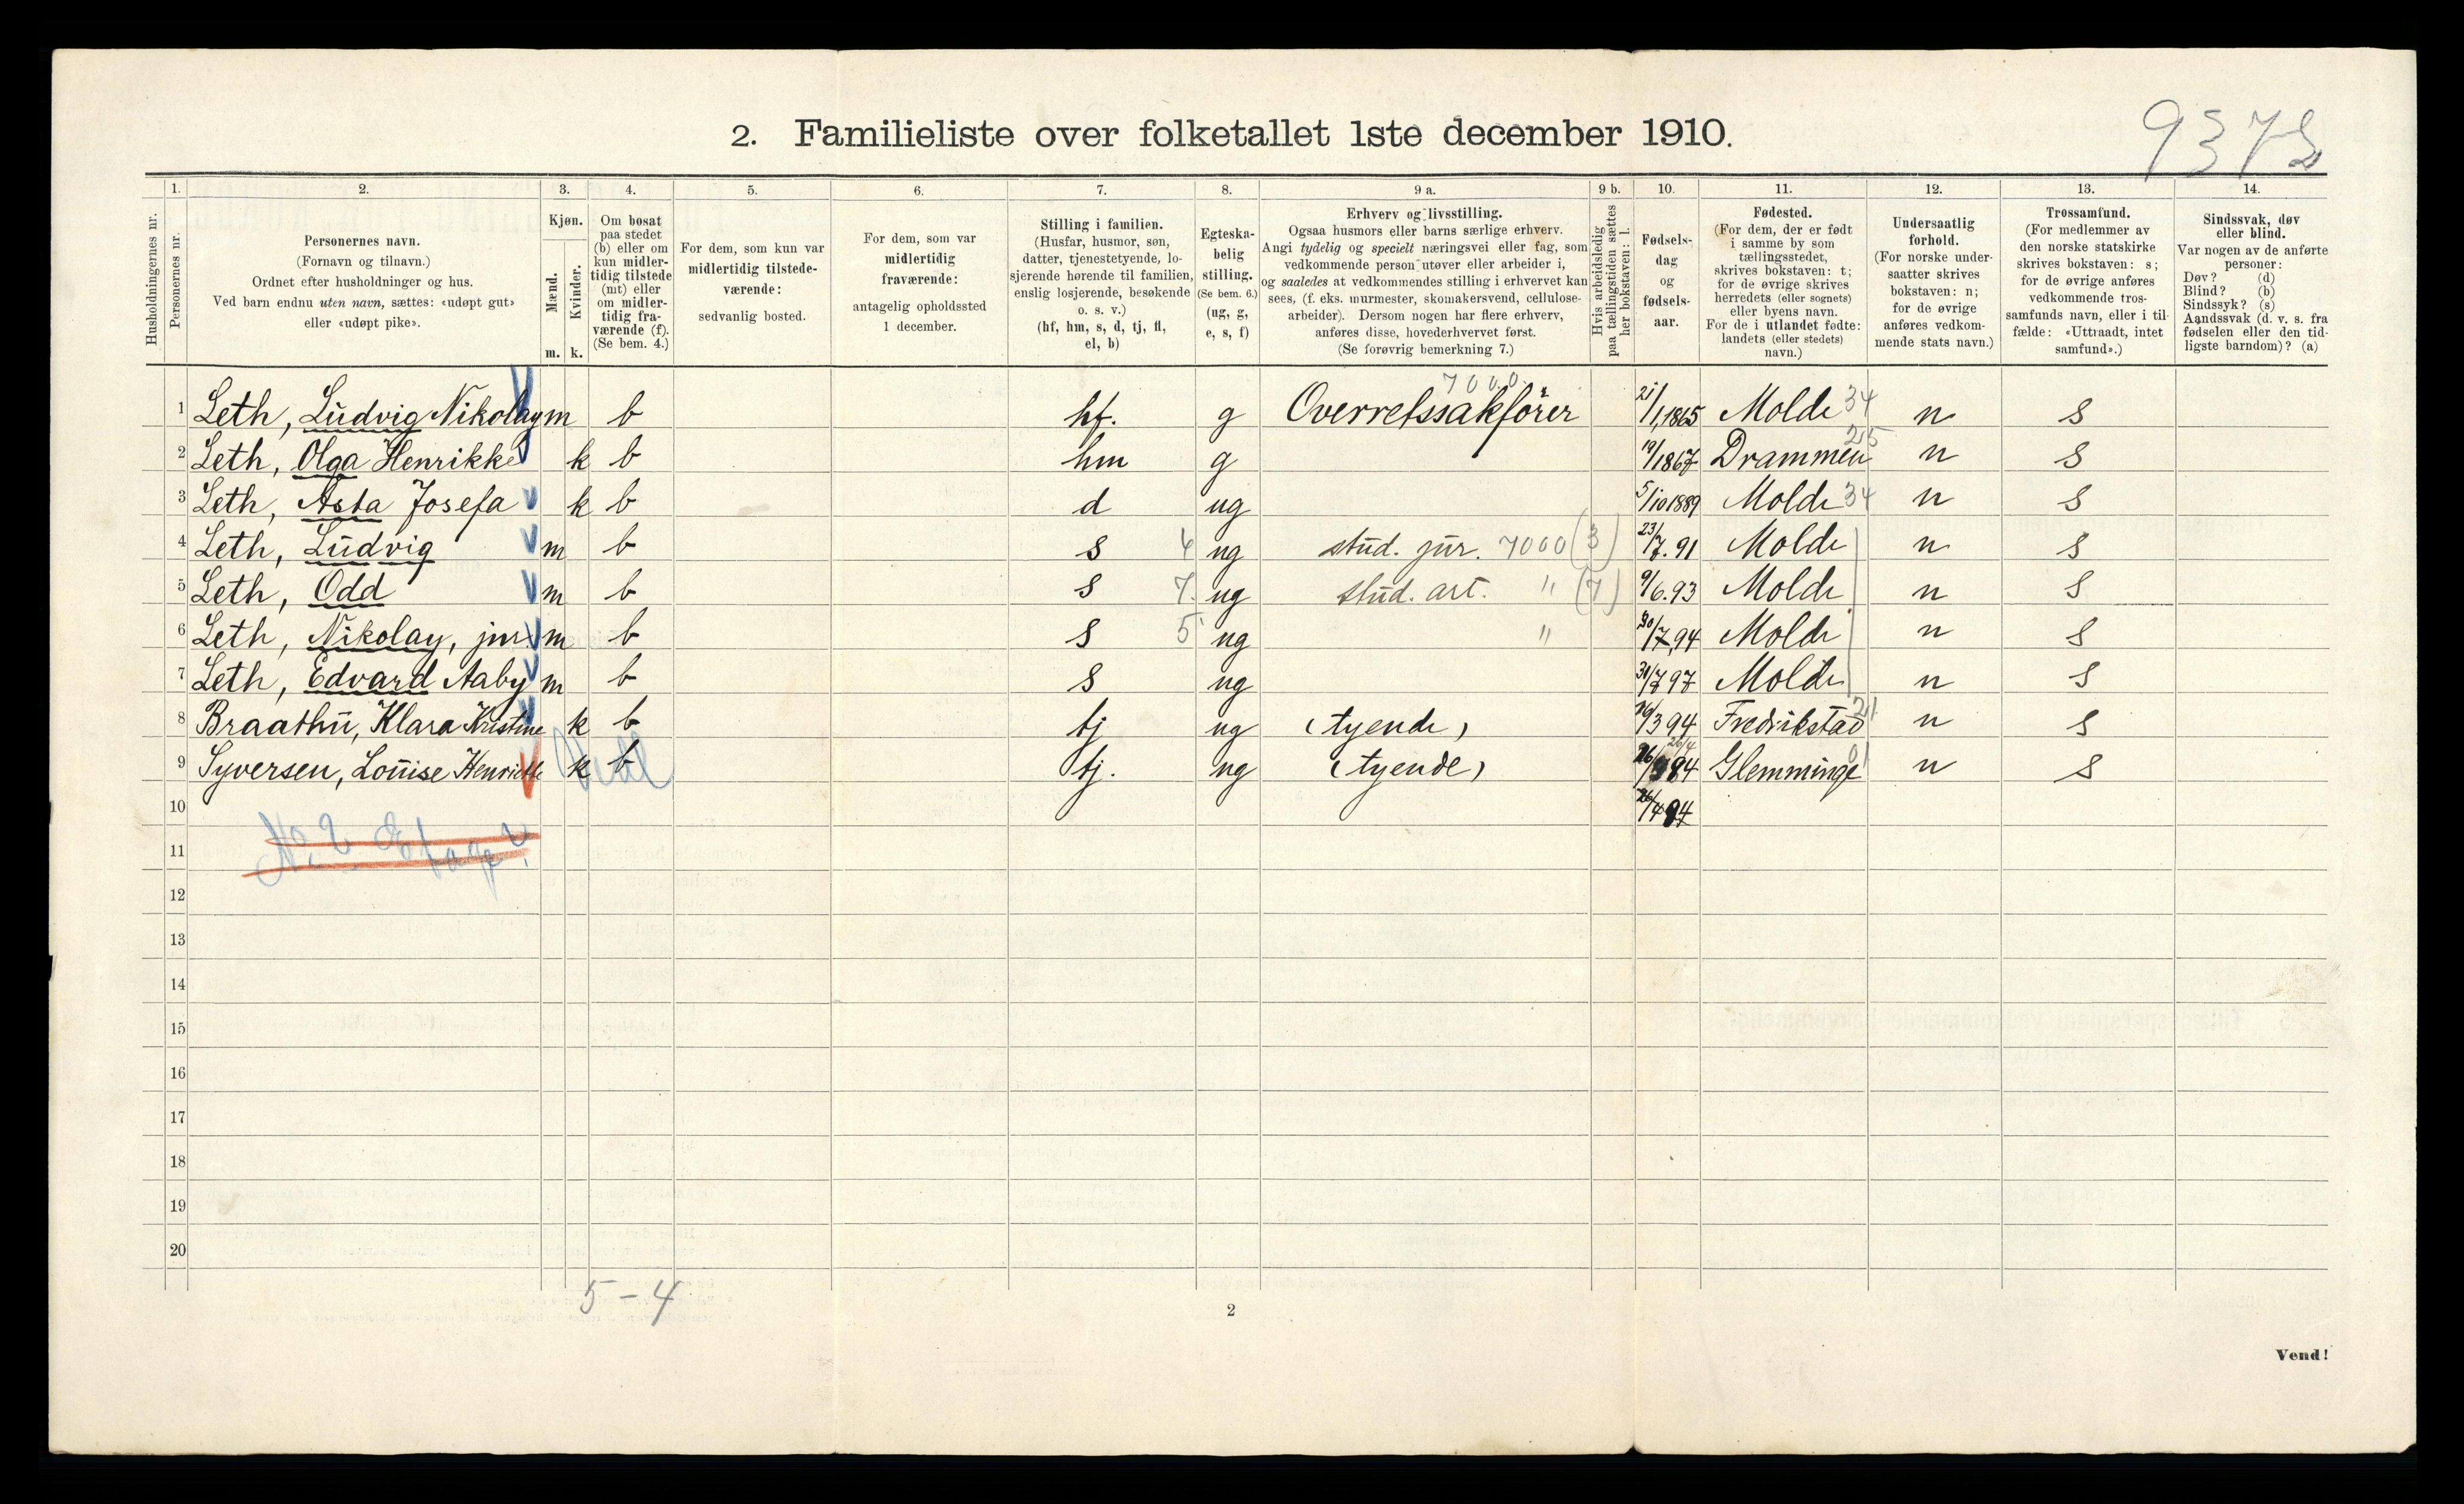 9372
2. Familieliste over folketallet 1ste december 1910.
Husholdningernes nr.
1. Personernes nr.
2. Personernes navn.
(Fornavn og tilnavn.)
Ordnet efter husholdninger og hus.
Ved barn endnu uten navn, sættes: «udøpt gut»
eller «udøpt pike».
3. Kjøn.
Mænd. m.
Kvinder. k.
4. Om bosat
paa stedet
(b) eller om
kun midler-
tidig tilstede
(mt) eller
om midler-
tidig fra-
værende (f).
(Se bem. 4.)
5. For dem, som kun var
midlertidig tilstede-
værende:
sedvanlig bosted.
6. For dem, som var
midlertidig
fraværende:
antagelig opholdssted
1 december.
7. Stilling i familien.
(Husfar, husmor, søn,
datter, tjenestetyende, lo-
sjerende hørende til familien,
enslig losjerende, besøkende
o. s. v.)
(hf, hm, s, d, tj, fl,
el, b)
8. Egteska-
belig
stilling.
(Se bem. 6.)
(ug, g,
e, s, f)
9 a. Erhverv og livsstilling.
Ogsaa husmors eller barns særlige erhverv.
Angi tydelig og specielt næringsvei eller fag, som
vedkommende person utøver eller arbeider i,
og saaledes at vedkommendes stilling i erhvervet kan
sees, (f. eks. murmester, skomakersvend, cellulose-
arbeider). Dersom nogen har flere erhverv,
anføres disse, hovederhvervet først.
(Se forøvrig bemerkning 7.)
9 b. Hvis arbeidsledig
paa tællingstiden sættes
her bokstaven: l.
10. Fødsels-
dag
og
fødsels-
aar.
11. Fødested.
(For dem, der er født
i samme by som
tællingsstedet,
skrives bokstaven: t;
for de øvrige skrives
herredets (eller sognets)
eller byens navn.
For de i utlandet fødte:
landets (eller stedets)
navn.)
12. Undersaatlig
forhold.
(For norske under-
saatter skrives
bokstaven: n;
for de øvrige
anføres vedkom-
mende stats navn.)
13. Trossamfund.
(For medlemmer av
den norske statskirke
skrives bokstaven: s;
for de øvrige anføres
vedkommende tros-
samfunds navn, eller i til-
fælde: «Uttraadt, intet
samfund».)
14. Sindssvak, døv
eller blind.
Var nogen av de anførte
personer:
Døv? (d)
Blind? (b)
Sindssyk? (s)
Aandssvak (d. v. s. fra
fødselen eller den tid-
ligste barndom)? (a)
7000
1 Leth, Ludvig Nikolay m b hf. g Overretssakfører 21/1,1865 Molde 34 n s
2 Leth, Olga Henrikke k b hm g 19/1867 Drammen 25 n s
3 Leth, Asta Josefa k b d ug 5/10 1889 Molde 34 n s
4 Leth, Ludvig m b s 4 ug stud. jur. 7000 (3) 23/7. 91 Molde n s
5 Leth, Odd m b s 7. ug stud. art. " (7) 9/6. 93 Molde n s
6 Leth, Nikolay, jnr. m b s 5 ug " 30/7, 94 Molde n s
7 Leth, Edvard Aaby m b s ug 31/7 97 Molde n s
8 Braathu, Klara Kristine k b tj ug (tyende) 16/3 94 Fredrikstad 21 n s
9 Syversen, Louise Henriette k b tj. ug (tyende) 26/4 84 Glemminge 01 n s
10 26/4 94
No 2 Etage
11
12
13
14
15
16
17
18
19
20
5 - 4
2
Vend!